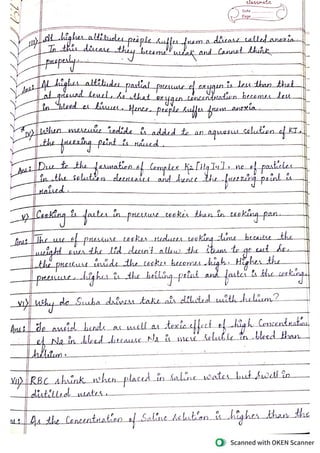 classmate
Date
Page
iii) At higher altitudes people suffer from a disease called anoxia.
In this disease they become weak and cannot think
properly.
Ans: At higher altitudes partial pressure of oxygen is less than that
at ground level, so that oxygen concentration becomes less
in blood or tissues. Hence people suffer from anoxia.
iv) When mercuric iodide is added to an aqueous solution of KI,
the freezing point is raised.
Ans: Due to the formation of complex K2[HgI4], no of particles
in the solution decreases and hence the freezing point is
raised.
v) Cooking is faster in pressure cooker than in cooking pan.
Ans: The use of pressure cooker reduces cooking time because the
weight over the lid doesn't allow the steam to go out so
the pressure inside the cooker becomes high. Higher the
pressure, higher is the boiling point and faster is the cooking.
vi) Why do Scuba drivers take air diluted with helium?
Ans: To avoid bends as well as toxic effect of high concentration
of N2 in blood because N2 is more soluble in blood than
helium.
vii) RBC shrink when placed in saline water but swell in
distilled water.
: As the concentration of Saline solution is higher than the
Scanned with OKEN Scanner